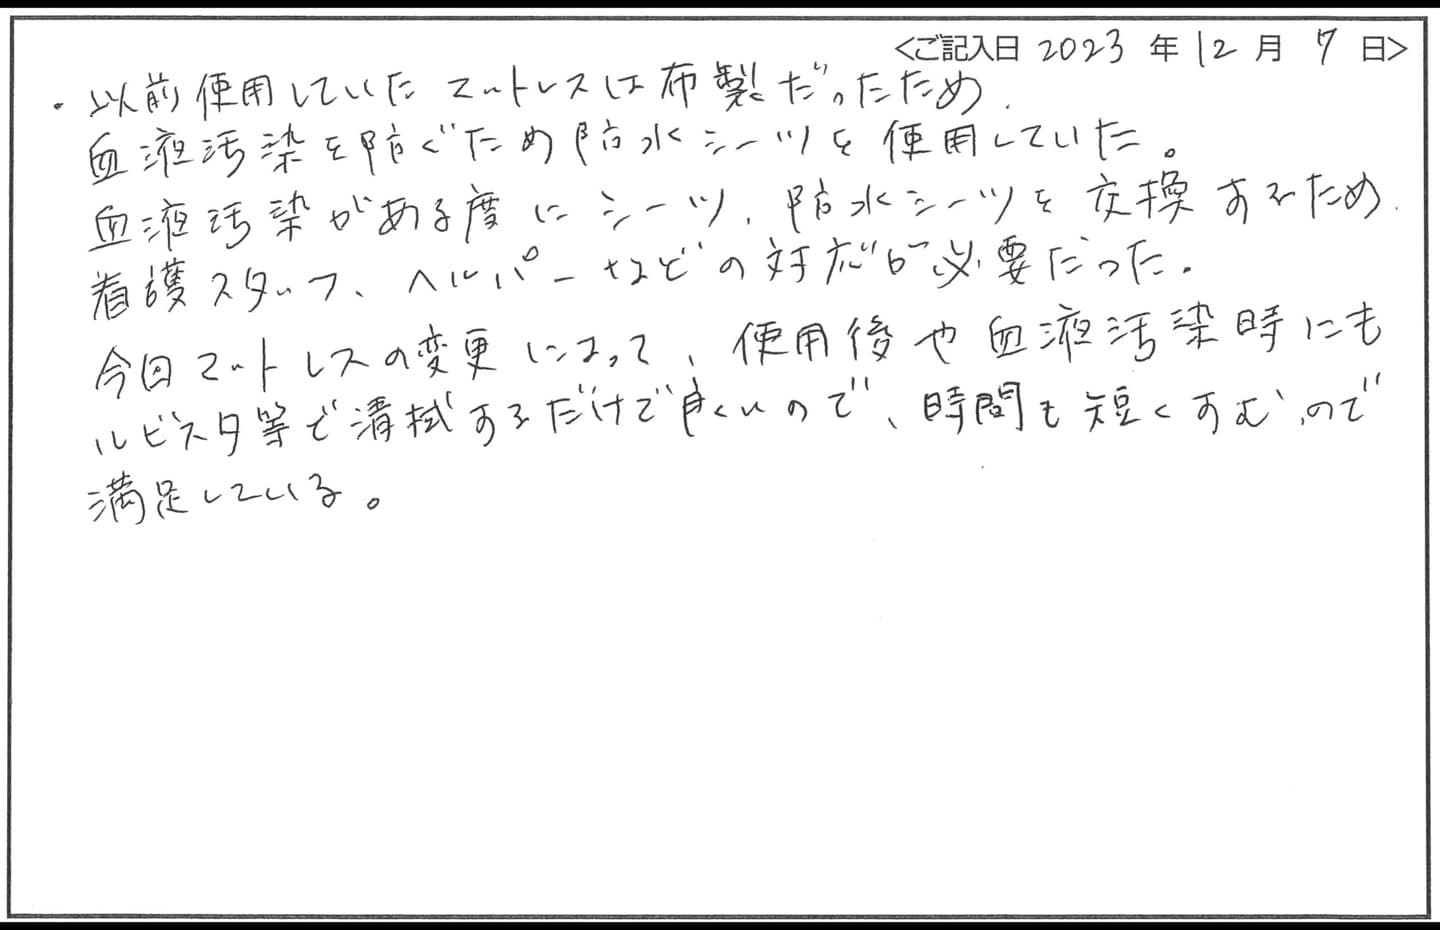 <ご記入日 2023 年 12 月 7 日>
・以前使用していたマットレスは布製だったため、
血液汚染を防ぐため防水シーツを使用していた。
血液汚染がある度にシーツ、防水シーツを交換するため、
看護スタッフ、ヘルパーなどの対応が必要だった。
今回マットレスの変更によって、使用後や血液汚染時にも
ルビスタ等で清拭するだけで良いので、時間も短くすむので
満足している。